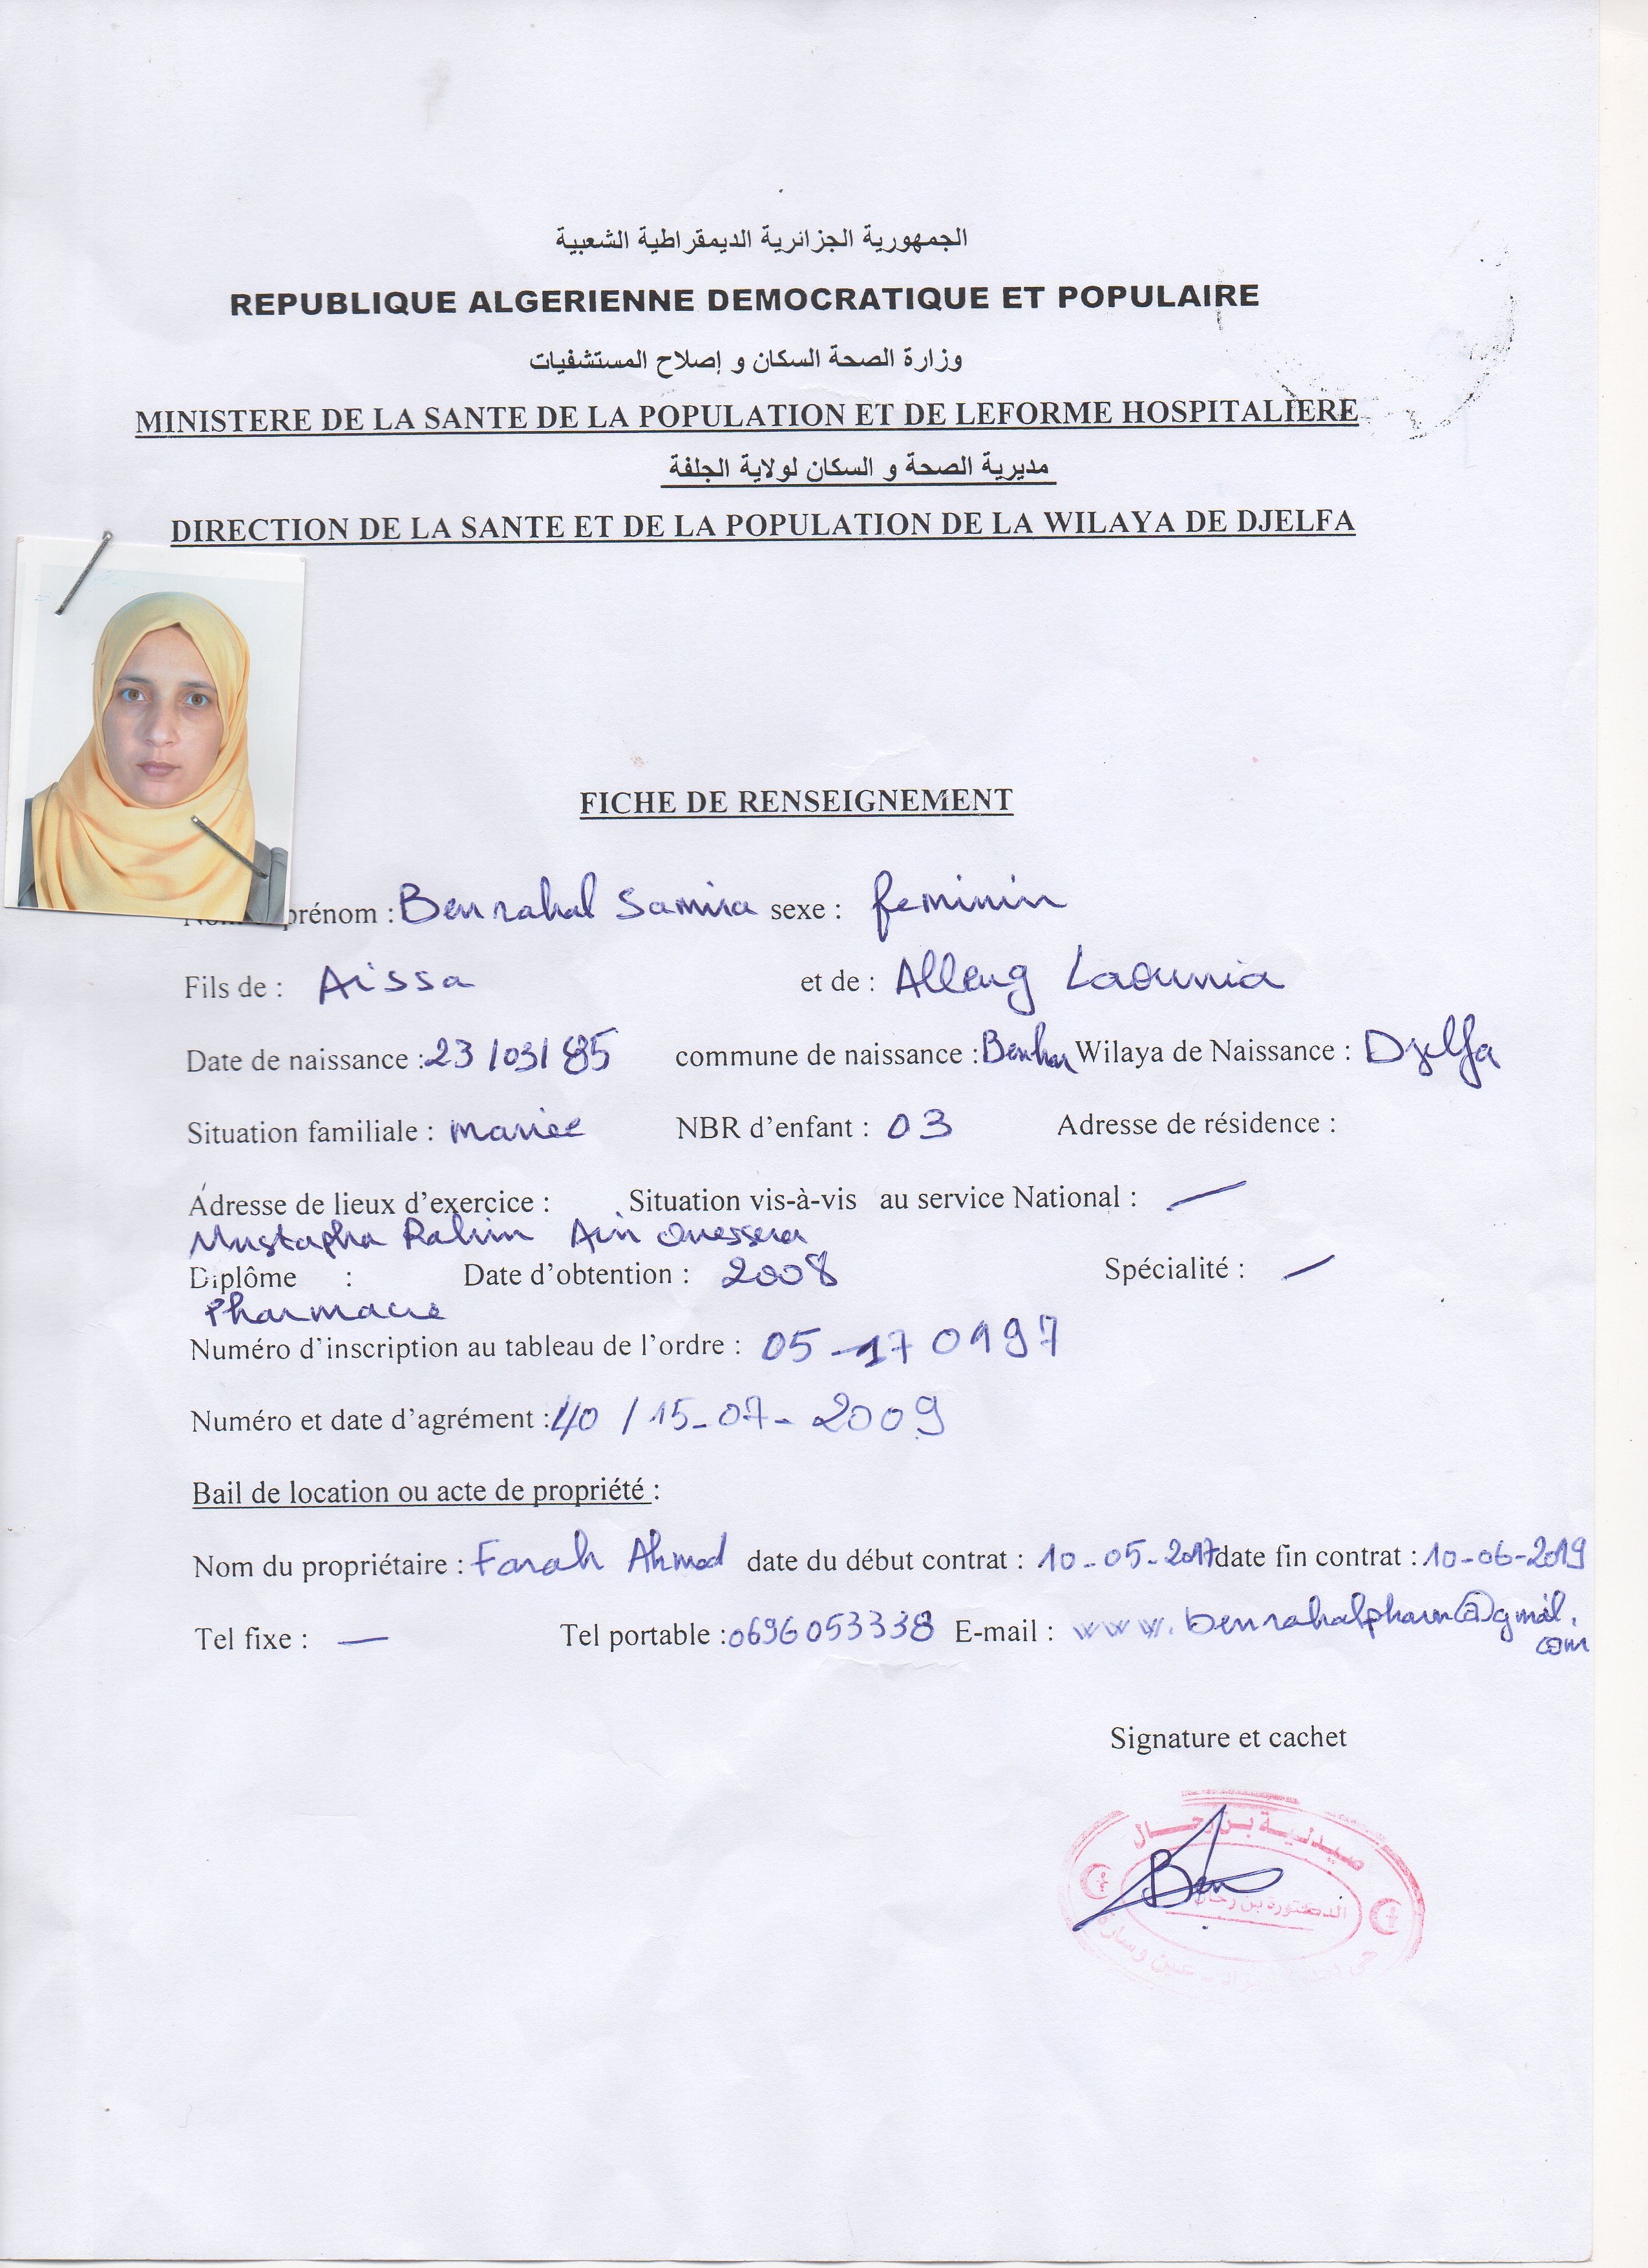 الجمهورية الجزائرية الديمقراطية الشعبية
REPUBLIQUE ALGERIENNE DEMOCRATIQUE ET POPULAIRE
وزارة الصحة السكان و إصلاح المستشفيات
MINISTERE DE LA SANTE DE LA POPULATION ET DE LEFORME HOSPITALIERE
مديرية الصحة و السكان لولاية الجلفة
DIRECTION DE LA SANTE ET DE LA POPULATION DE LA WILAYA DE DJELFA
FICHE DE RENSEIGNEMENT
prénom : Benrahal Samira sexe : feminin
Fils de : Aissa et de : Alleug Laounia
Date de naissance : 23/03/85 commune de naissance : Benhar Wilaya de Naissance : Djelfa
Situation familiale : mariée NBR d'enfant : 03 Adresse de résidence :
Adresse de lieux d'exercice : Situation vis-à-vis au service National : —
Mustapha Rahim Ain Ouessera
Diplôme : Date d'obtention : 2008 Spécialité : —
Pharmacie
Numéro d'inscription au tableau de l'ordre : 05-170997
Numéro et date d'agrément : 40 / 15-07-2009
Bail de location ou acte de propriété :
Nom du propriétaire : Farah Ahmed date du début contrat : 10-05-2017 date fin contrat : 10-06-2019
Tel fixe : — Tel portable : 0696053338 E-mail : www.benrahalpharm@gmail.
com
Signature et cachet
صيدلية بن رحال
Ben
الدكتورة بن رحال
عين وسارة